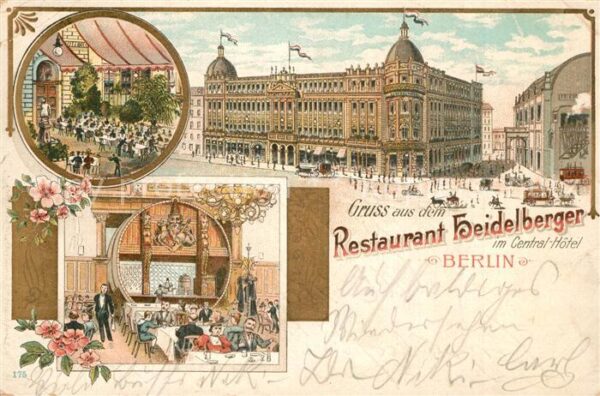 Gruss aus dem
Restaurant Heidelberger
im Central-Hôtel
BERLIN
Auf baldiges
Wiedersehen
Carl
175